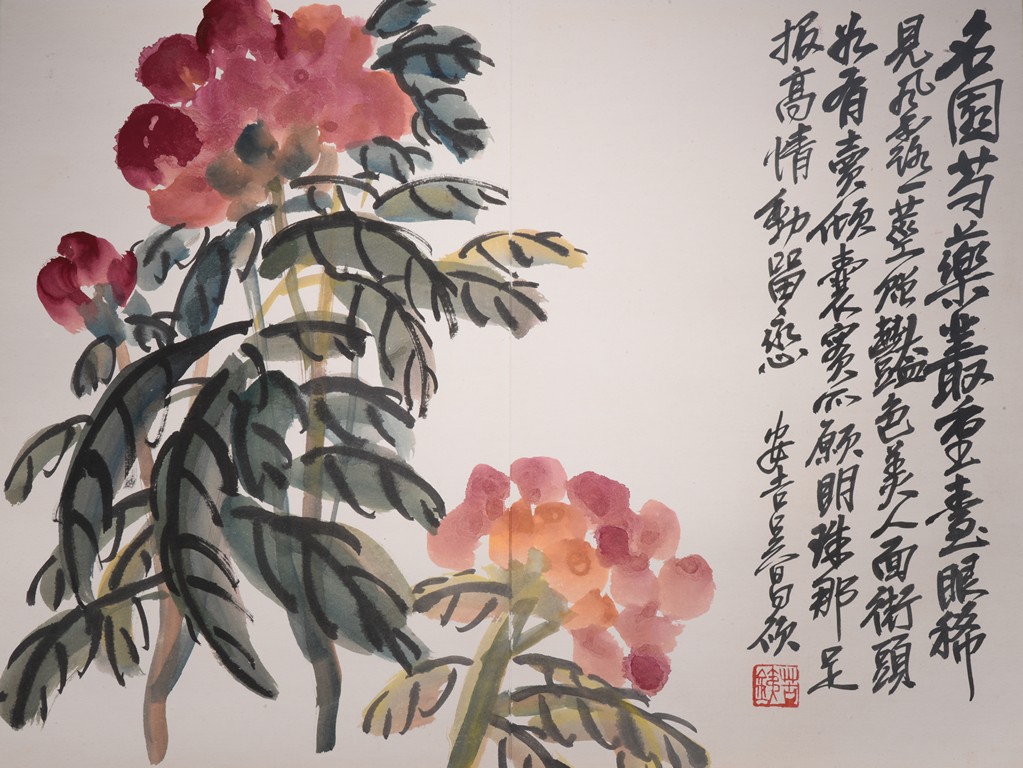 名園芍藥叢重臺眼稀
見風露一莖強豔色美人面街頭
如有賣傾囊寶不願明珠那足
报高情動留戀
安吉吳昌碩
苦鐵